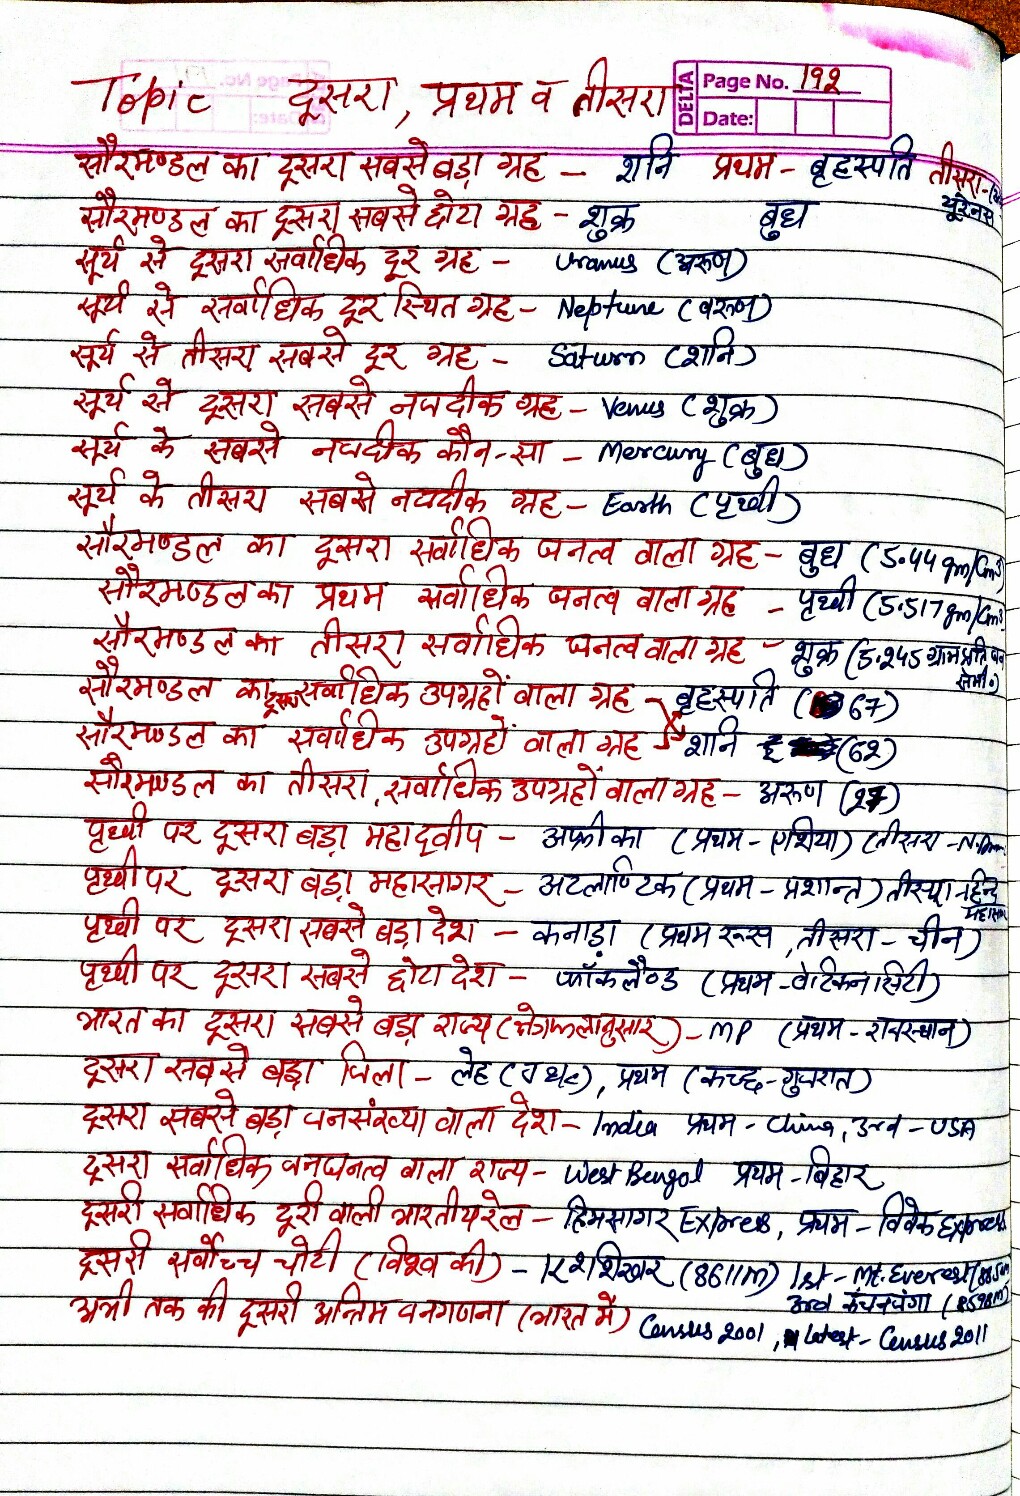 Topic दूसरा, प्रथम व तीसरा
DELTA Page No. 192
Date:
सौरमण्डल का दूसरा सबसे बड़ा ग्रह – शनि प्रथम - बृहस्पति तीसरा -
यूरेनस
सौरमण्डल का दूसरा सबसे छोटा ग्रह - शुक्र बुध
सूर्य से दूसरा सर्वाधिक दूर ग्रह – Uranus (अरूण)
सूर्य से सर्वाधिक दूर स्थित ग्रह - Neptune (वरूण)
सूर्य से तीसरा सबसे दूर ग्रह - Saturn (शनि)
सूर्य से दूसरा सबसे नजदीक ग्रह - Venus (शुक्र)
सूर्य के सबसे नजदीक कौन-सा – Mercury (बुध)
सूर्य के तीसरा सबसे नजदीक ग्रह - Earth (पृथ्वी)
सौरमण्डल का दूसरा सर्वाधिक घनत्व वाला ग्रह - बुध (5.44 gm/cm³)
सौरमण्डल का प्रथम सर्वाधिक घनत्व वाला ग्रह - पृथ्वी (5.517 gm/cm³
सौरमण्डल का तीसरा सर्वाधिक घनत्व वाला ग्रह - शुक्र (5.245 ग्राम प्रति घन
सेमी०)
सौरमण्डल का दूसरा सर्वाधिक उपग्रहों वाला ग्रह - बृहस्पति (67)
सौरमण्डल का सर्वाधिक उपग्रहों वाला ग्रह - शनि (62)
सौरमण्डल का तीसरा सर्वाधिक उपग्रहों वाला ग्रह - अरूण (27)
पृथ्वी पर दूसरा बड़ा महाद्वीप - अफ्रीका (प्रथम - एशिया) (तीसरा -
पृथ्वी पर दूसरा बड़ा महासागर - अटलाण्टिक (प्रथम - प्रशान्त) तीसरा - हिन्द
महासागर
पृथ्वी पर दूसरा सबसे बड़ा देश - कनाड़ा (प्रथम रूस, तीसरा - चीन)
पृथ्वी पर दूसरा सबसे छोटा देश - फॉकलैण्ड (प्रथम - वेटिकन सिटी)
भारत का दूसरा सबसे बड़ा राज्य (क्षेत्रफलानुसार) - MP (प्रथम - राजस्थान)
दूसरा सबसे बड़ा जिला - लेह, प्रथम (कच्छ - गुजरात)
दूसरा सबसे बड़ा जनसंख्या वाला देश - India प्रथम - China, 3rd - USA
दूसरा सर्वाधिक जनघनत्व वाला राज्य - West Bengal प्रथम - बिहार
दूसरी सर्वाधिक दूरी वाली भारतीय रेल - हिमसागर Express, प्रथम - विवेक Express
दूसरी सर्वोच्च चोटी (विश्व की) - K2 शिखर (8611m) 1st - Mt. Everest
3rd कंचनजंगा (8598m)
अभी तक की दूसरी अन्तिम जनगणना (भारत में) Census 2001, Latest - Census 2011